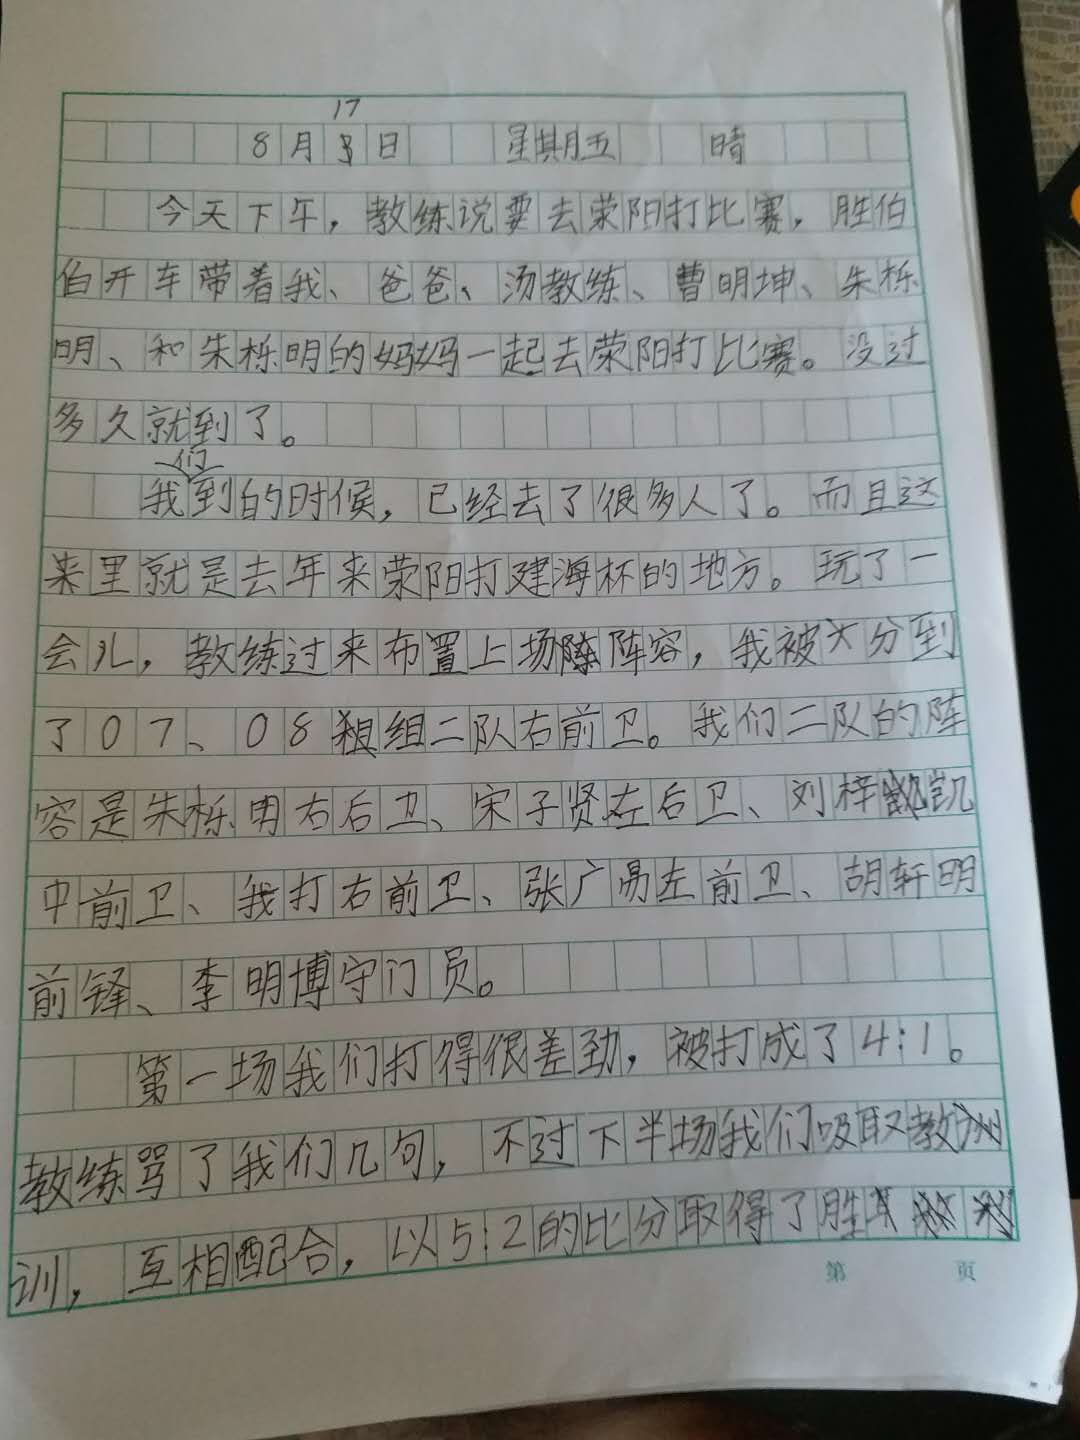 17
8月3日 星期五 晴
今天下午，教练说要去荥阳打比赛，胜伯
伯开车带着我、爸爸、汤教练、曹明坤、朱栎
明、和朱栎明的妈妈一起去荥阳打比赛。没过
多久就到了。
们
我到的时候，已经去了很多人了。而且这
里就是去年来荥阳打建海杯的地方。玩了一
会儿，教练过来布置上场阵容，我被大分到
了07、08组二队右前卫。我们二队的阵
容是朱栎明右后卫、宋子贤左后卫、刘梓凯
中前卫、我打右前卫、张广易左前卫、胡轩明
前锋、李明博守门员。
第一场我们打得很差劲，被打成了4:1。
教练骂了我们几句，不过下半场我们吸取教
训，互相配合，以5:2的比分取得了胜
第 页